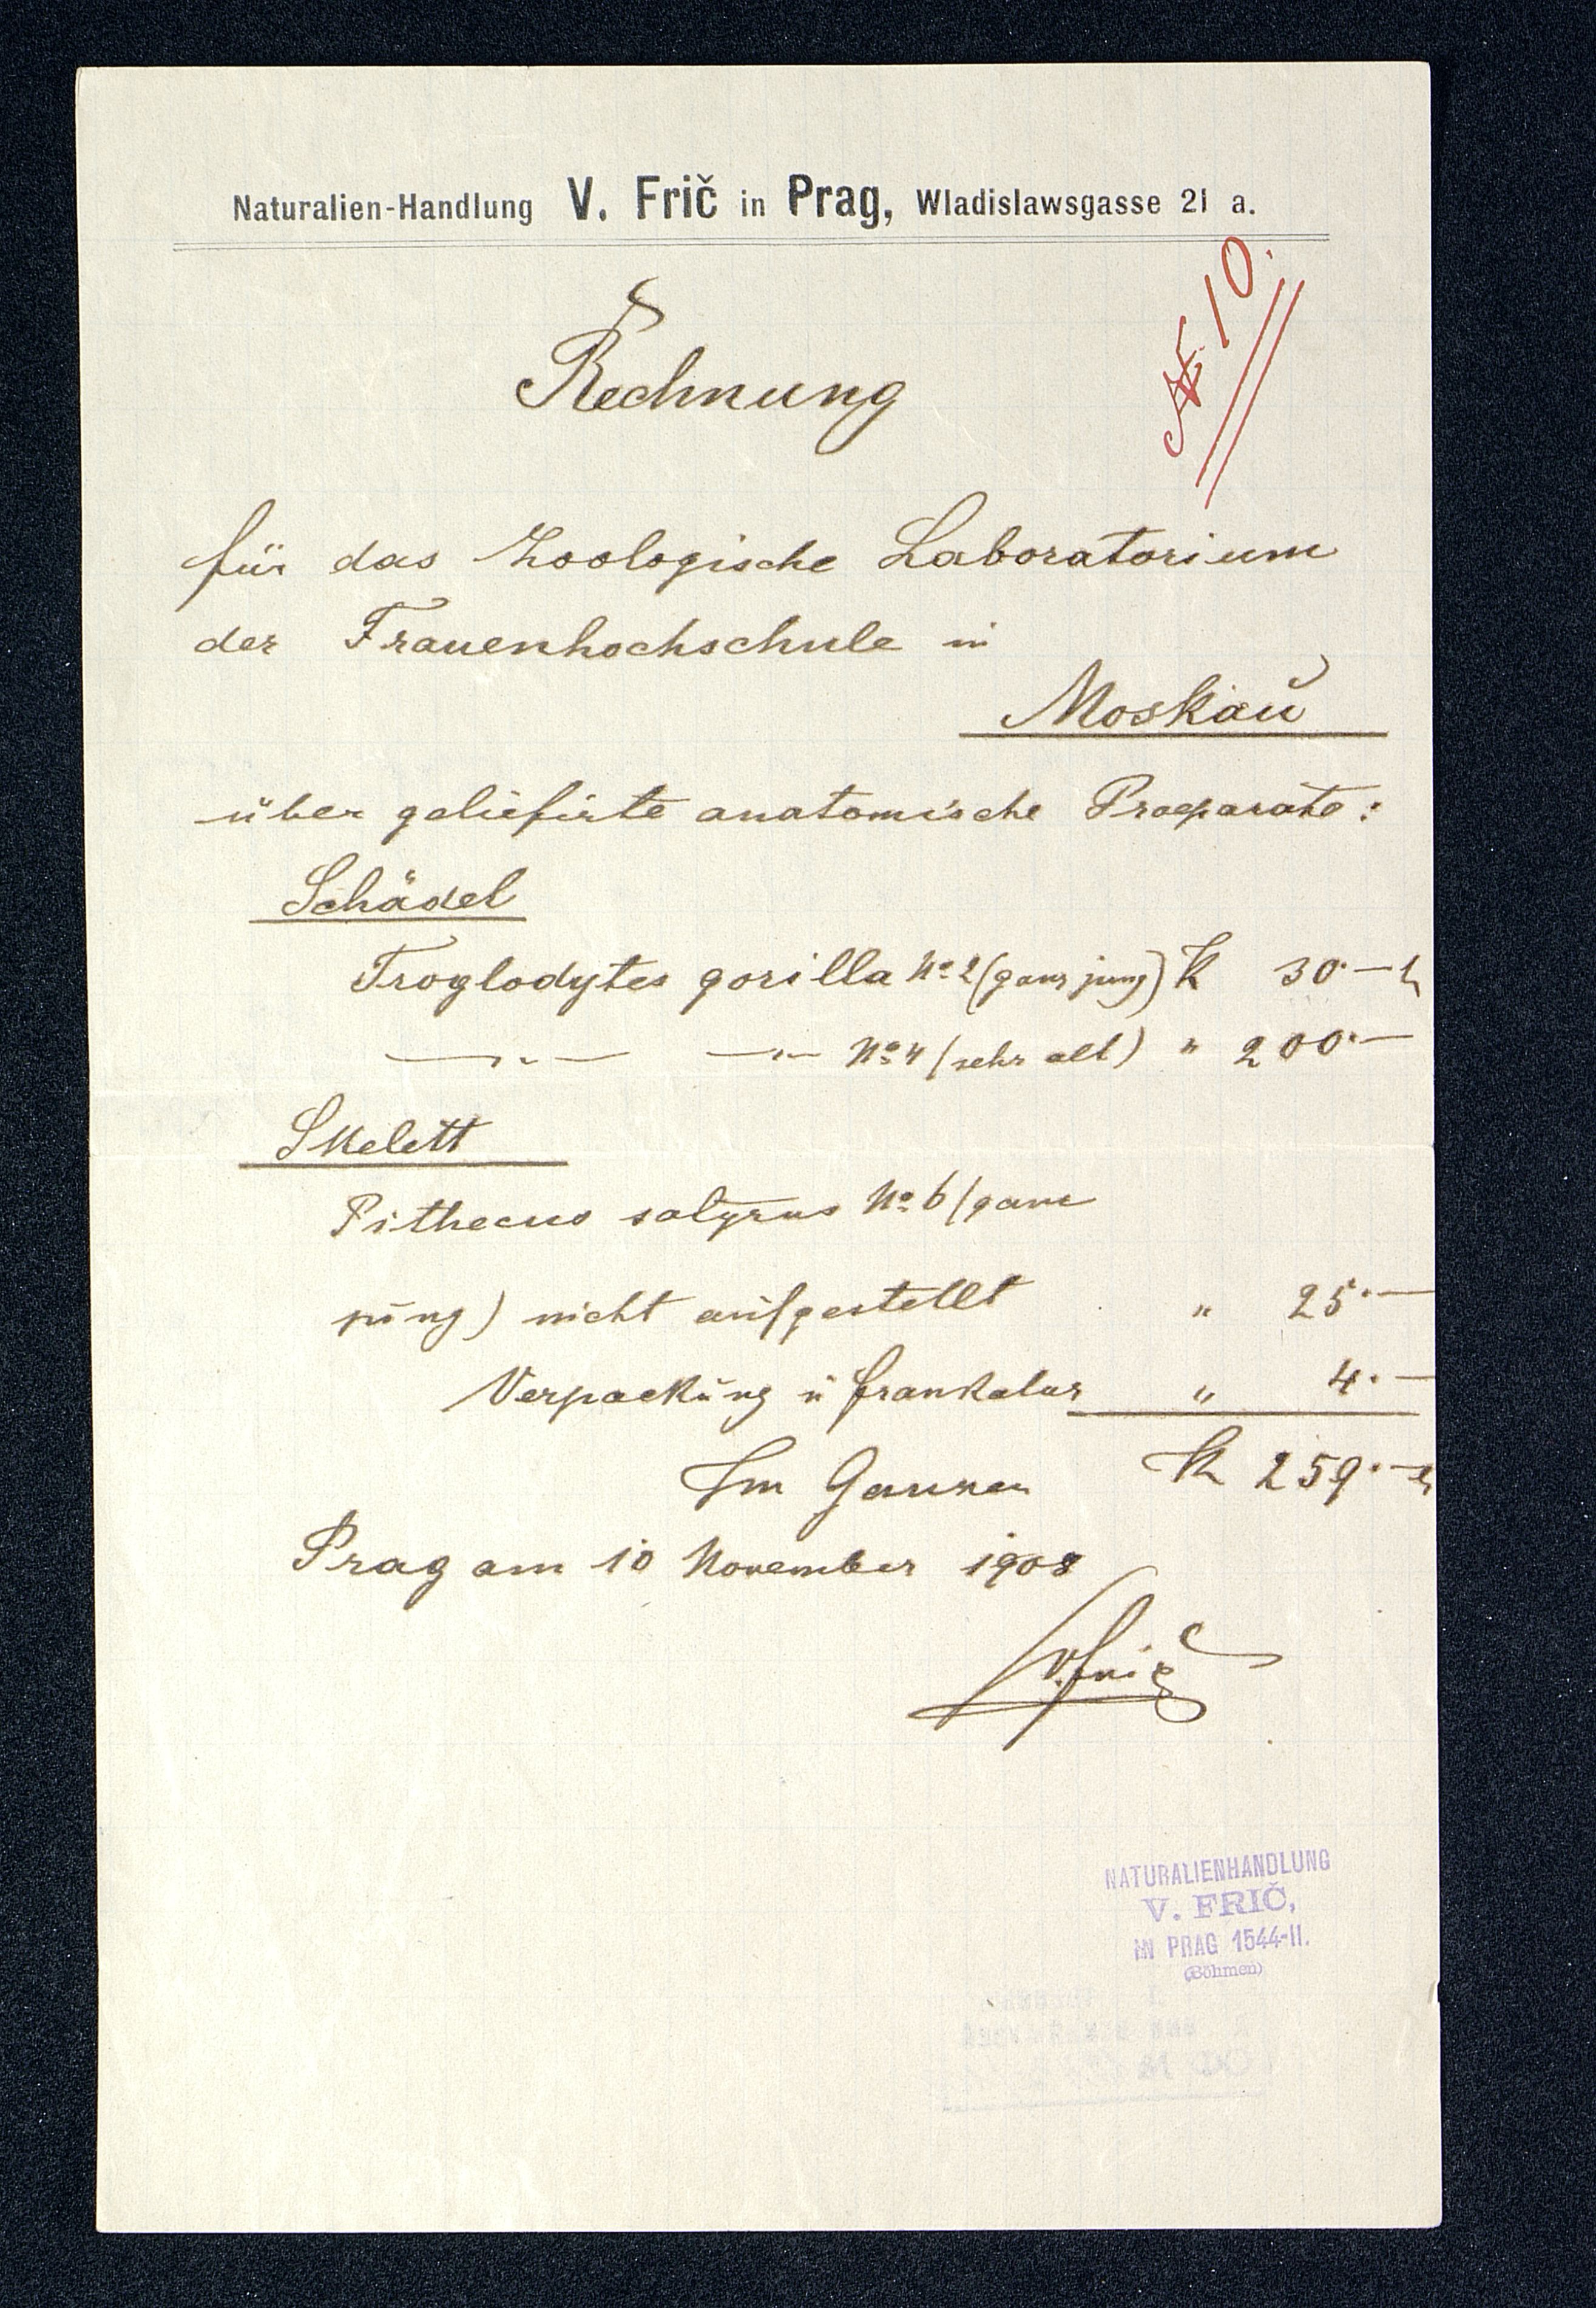 Naturalien-Handlung V. Frič in Prag, Wladislawsgasse 21 a.
№ 10.
Rechnung
für das Zoologische Laboratorium
der Frauenhochschule in
Moskau
über geliefirte anatomische Praeparate:
Schädel
Troglodytes gorilla No 2 (ganz jung) K 30·— h
—„— —„— No 4 (sehr alt) „ 200·—
Skelett
Pithecus satyrus No 6 (ganz
jung) nicht aufgestellt „ 25·—
Verpackung u frankatur „ 4·—
Im Ganzen K 259·— h
Prag am 10 November 1908
V. Frič
NATURALIENHANDLUNG
V. FRIČ,
IN PRAG 1544-II.
(Böhmen)